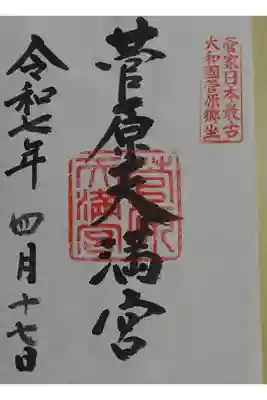 菅家日本最古
大和國菅原郷坐
菅原天満宮
菅原
天満宮
令和七年 四月十七日